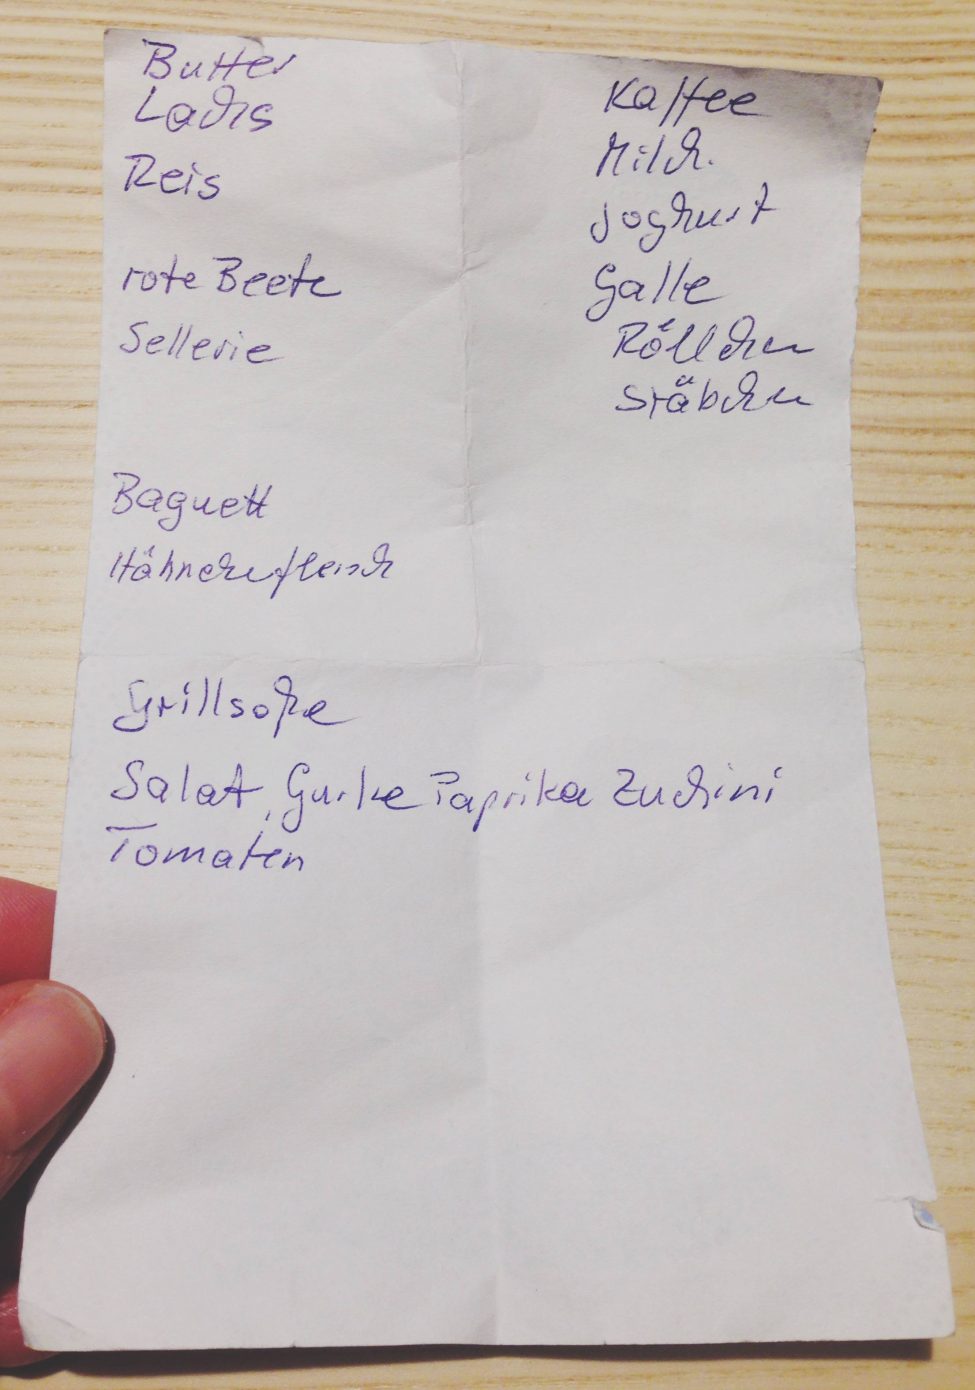 Butter
Lachs
Reis
rote Beete
Sellerie
Baguett
Hähnchenfleisch
Grillsoße
Salat, Gurke Paprika Zuchini
Tomaten
Kaffee
Milch.
Joghurt
Galle
Röllchen
Stäbchen